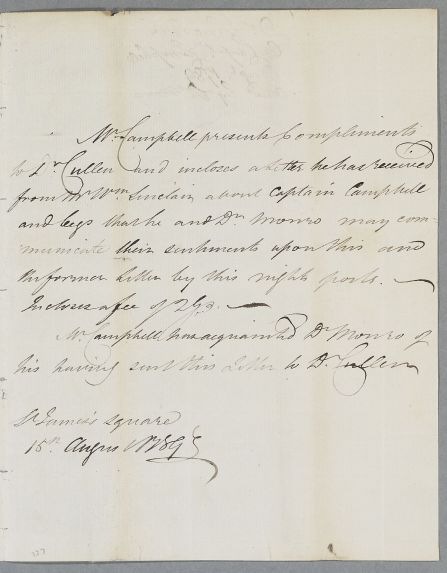 Mr. Campbell presents Compliments
to Dr. Cullen and incloses a letter he has received
from Mr. Wm. Sinclair about Captain Campbell
and begs that he and Dr. Monro may com-
municate their sentiments upon this and
the former letter by this nights post. —
Incloses a fee of 2 Gs. —
Mr. Campbell has acquainted Dr. Monro of
his having sent this Letter to Dr. Cullen
St. James's Square
15th August